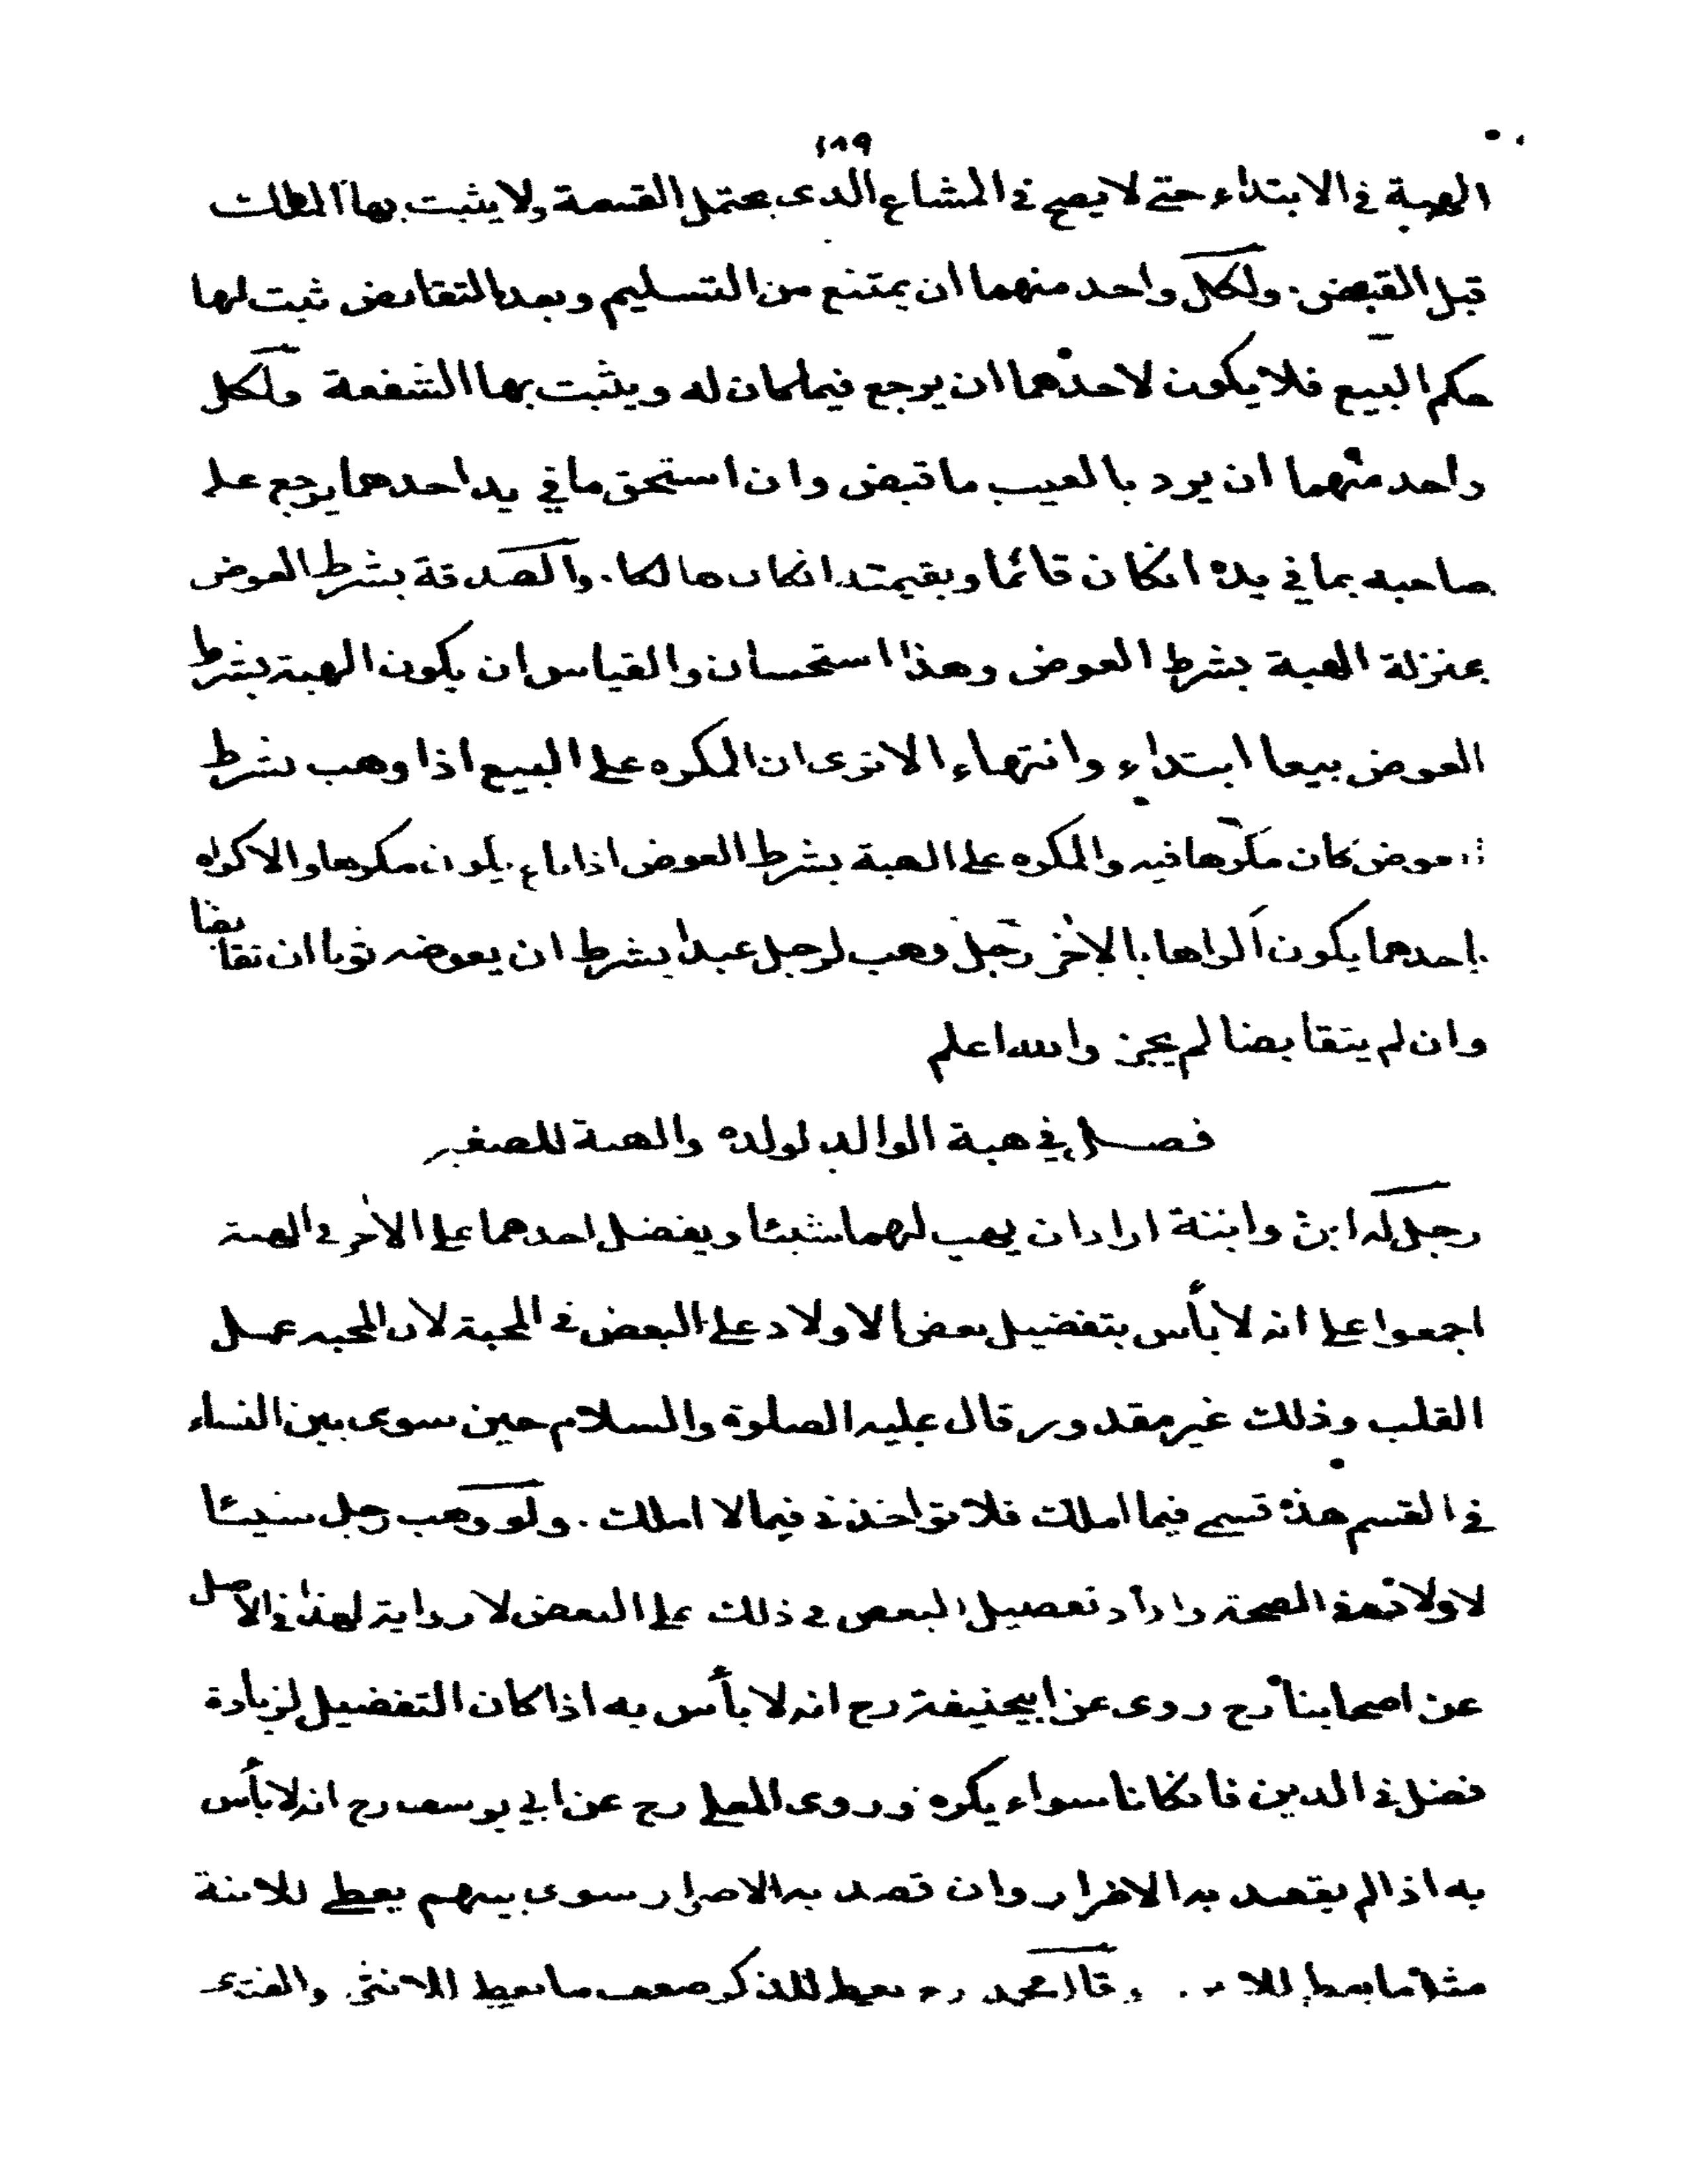 ٤٨٩
الهبة في الابتداء حتى لا يصح في المشاع الذى يحتمل القسمة ولا يثبت بها الملك
قبل القبض . ولكل واحد منهما ان يمتنع من التسليم وبعد التقابض ثبت لها
حكم البيع فلا يكون لاحدهما ان يرجع فيما كان له ويثبت بها الشفعة ولكل
واحد منهما ان يرد بالعيب ما قبض وان استحق ما في يد احدهما يرجع على
صاحبه بما في يده انكان قائما وبقيمته انكان هالكا . والصدقة بشرط العوض
بمنزلة الهبة بشرط العوض وهذا استحسان والقياس ان يكون الهبة بشرط
العوض بيعا ابتداء وانتهاء الا ترى ان المكره على البيع اذا وهب بشرط
العوض كان مكرها فيه والمكره على الهبة بشرط العوض اذا باع يكون مكرها والاكراه
باحدهما يكون اكراها بالاخر رجل وهب لرجل عبدا بشرط ان يعوضه ثوبا ان تقابضا
وان لم يتقابضا لم يجز والله اعلم
فصل في هبة الوالد لولده والهبة للصغير
رجل له ابن وابنة اراد ان يهب لهما شيئا ويفضل احدهما على الاخر في الهبة
اجمعوا على انه لا بأس بتفضيل بعض الاولاد على البعض في المحبة لان المحبه عمل
القلب وذلك غير مقدور قال عليه الصلوة والسلام حين سوى بين النساء
في القسم هذه قسمى فيما املك فلا تؤاخذني فيما لا املك . ولو وهب رجل شيئا
لاولاده في الصحة واراد تفضيل البعض في ذلك على البعض لا رواية لهذا في الاصل
عن اصحابنا رح روى عن ابيحنيفة رح انه لا بأس به اذا كان التفضيل لزيادة
فضل في الدين فانكانا سواء يكره وروى المعلى رح عن ابي يوسف رح انه لا بأس
به اذا لم يقصد به الاضرار وان قصد به الاضرار سوى بينهم يعطى للابنة
مثل ما يعطى للابن . وقال محمد رح يعطى للذكر ضعف ما يعطى للانثى والفتوى